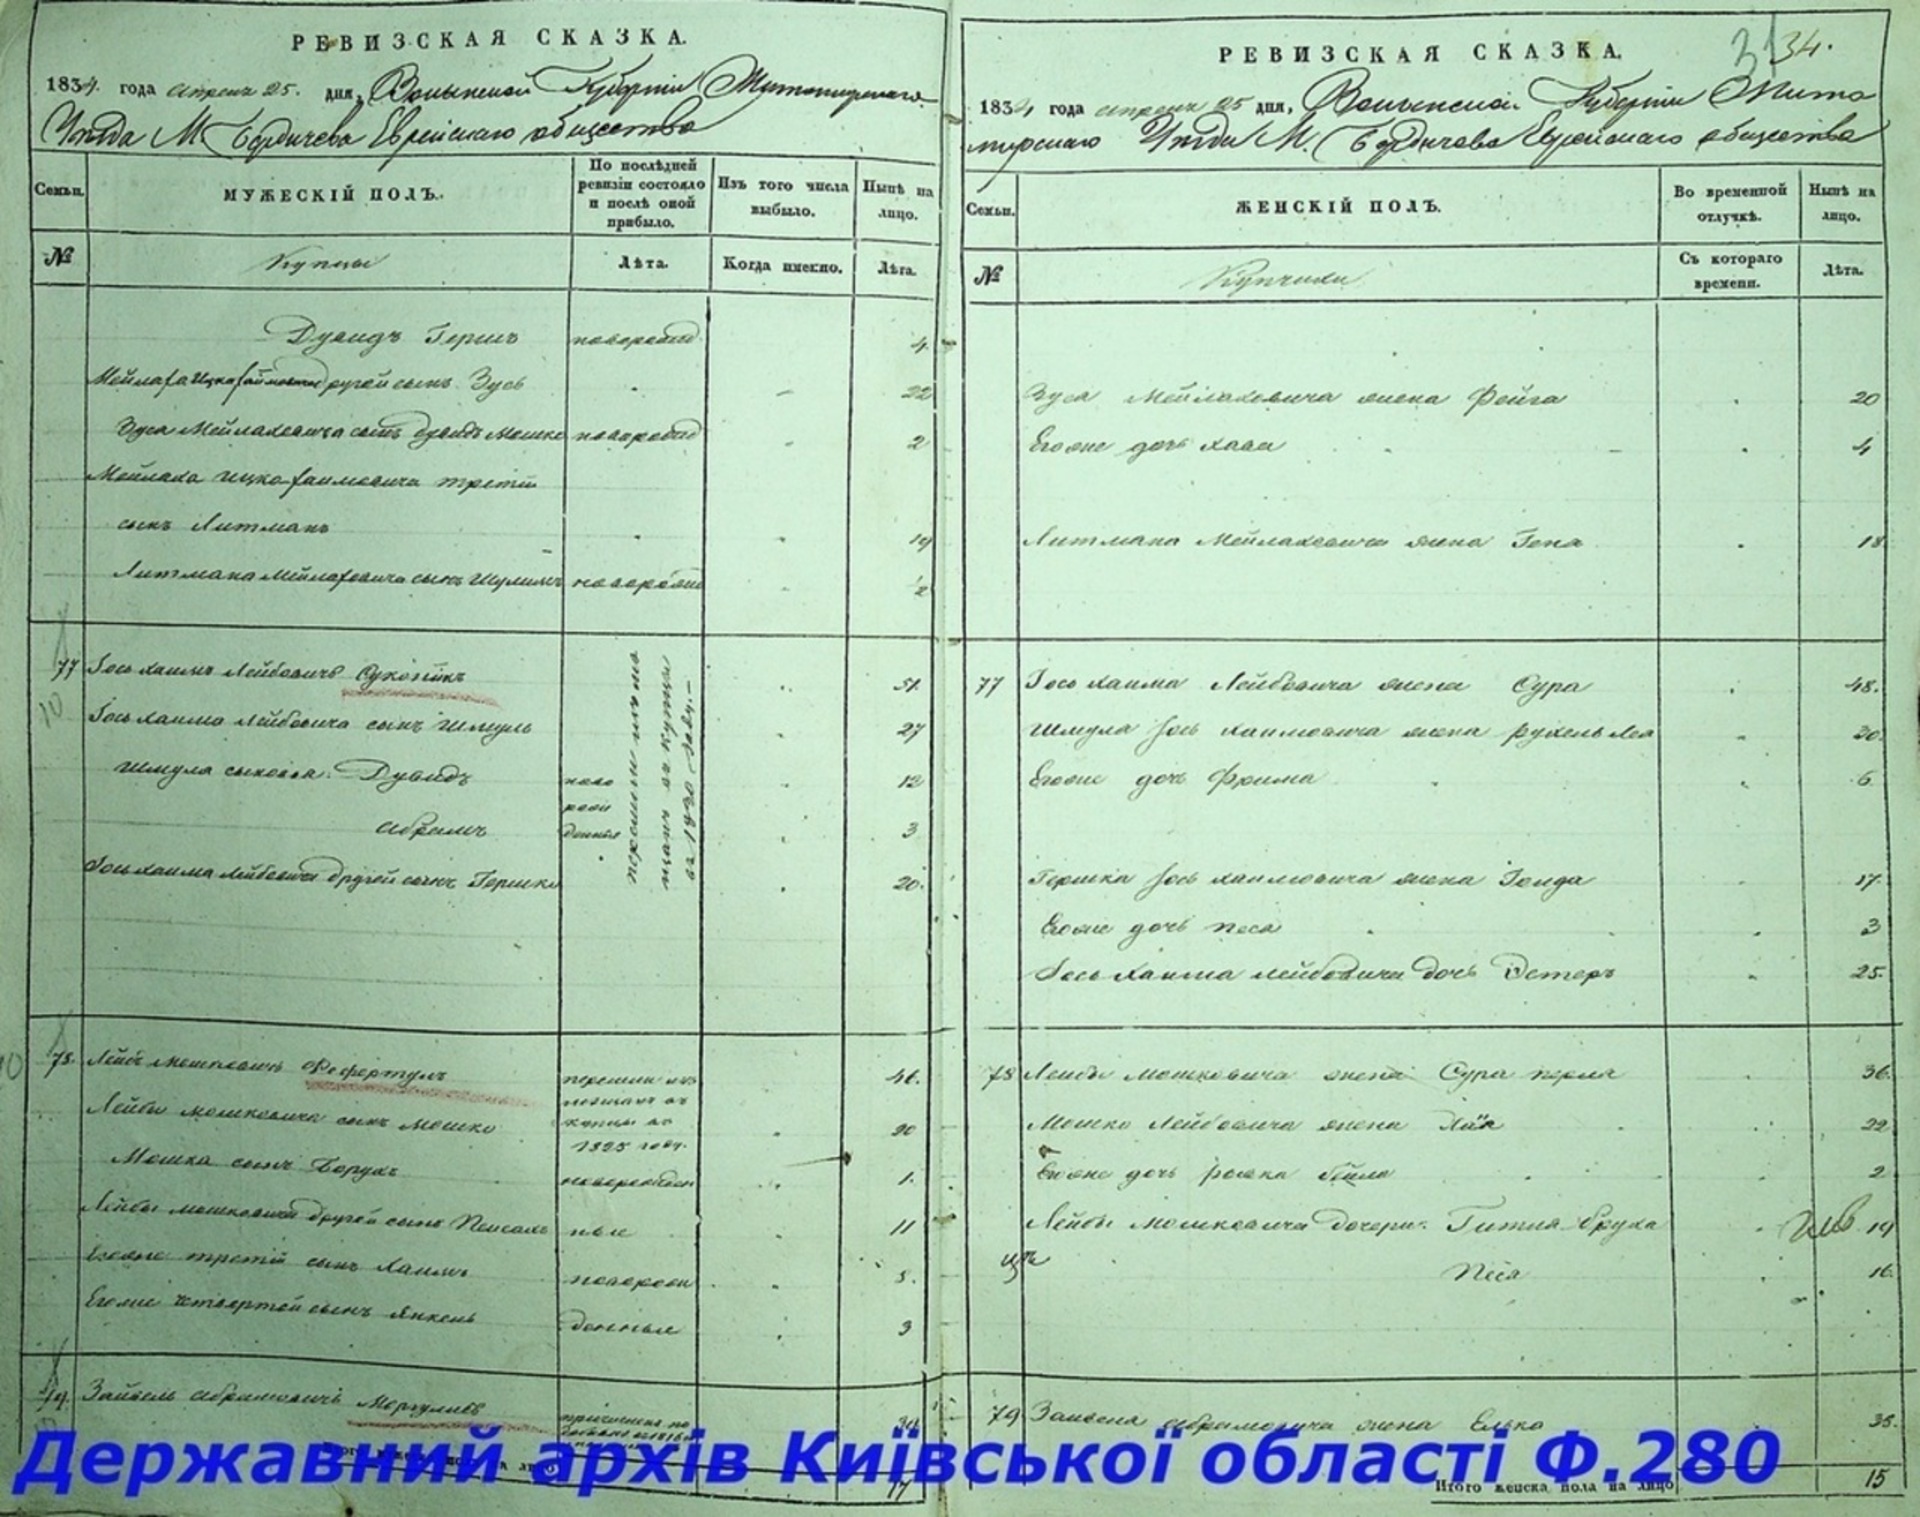 РЕВИЗСКАЯ СКАЗКА.
1834. года апреля 25. дня, Волынской Губерніи Житомирскаго
Уѣзда М. Бердичева Еврейскаго общества
Семьи.
МУЖЕСКІЙ ПОЛЪ.
По послѣдней ревизіи состояло и послѣ оной прибыло.
Изъ того числа выбыло.
Нынѣ на лицо.
№
Купцы
Лѣта.
Когда именно.
Лѣта.
Дувидъ Гершъ 4.
Зусь 22
Зуся Мейлаховича сынъ Дувидъ Мошко 2
Мейлаха Ицко Хаимовича третій
сынъ Литманъ 19
Литмана Мейлаховича сынъ Шулимъ 2
77 Іось Хаимъ Лейбовичъ 51.
Іось Хаима Лейбовича сынъ Шмуль 27
Шмуля сыновья. Дувидъ 12
Абрамъ 3
Іось Хаима Лейбовича другой сынъ Гершко 20.
перешли изъ мѣщанъ въ купцы
78. Лейба Мошковичъ 46.
Лейбы Мошковича сынъ Мошко 20
перешли изъ мѣщанъ въ купцы въ 1825 году.
Мошка сынъ Борухъ 1.
Лейбы Мошковича другой сынъ Пейсахъ 11
Егоже третій сынъ Хаимъ
Егоже четвертой сынъ Янкель 3
79. Зайвель Абрамовичъ Моргулисъ
17
РЕВИЗСКАЯ СКАЗКА.
34.
1834 года апреля 25 дня, Волынской Губерніи Жито
мирскаго Уѣзда М. Бердичева Еврейскаго общества
Семьи.
ЖЕНСКІЙ ПОЛЪ.
Во временной отлучкѣ.
Нынѣ на лицо.
№
Купчихи
Съ котораго времени.
Лѣта.
Зуся Мейлаховича жена Фейга 20
Егоже дочь Хава 4
Литмана Мейлаховича жена Гена 18
77 Іось Хаима Лейбовича жена Сура 48.
Шмуля Іось Хаимовича жена Рухель Лея 20.
Егоже дочь Фрима 6
Гершка Іось Хаимовича жена Голда 17.
Егоже дочь Песя 3
Іось Хаима Лейбовича дочь Эстеръ 25.
78 Лейбы Мошковича жена Сура Перля 36.
Мошко Лейбовича жена Хая 22
Егоже дочь Бейла 2
Лейбы Мошковича дочери. Гитля Бруха 19
Песя 16.
79 Зайвеля Абрамовича жена Елька 38.
Итого женска пола на лицо 15
Державний архів Київської області Ф.280